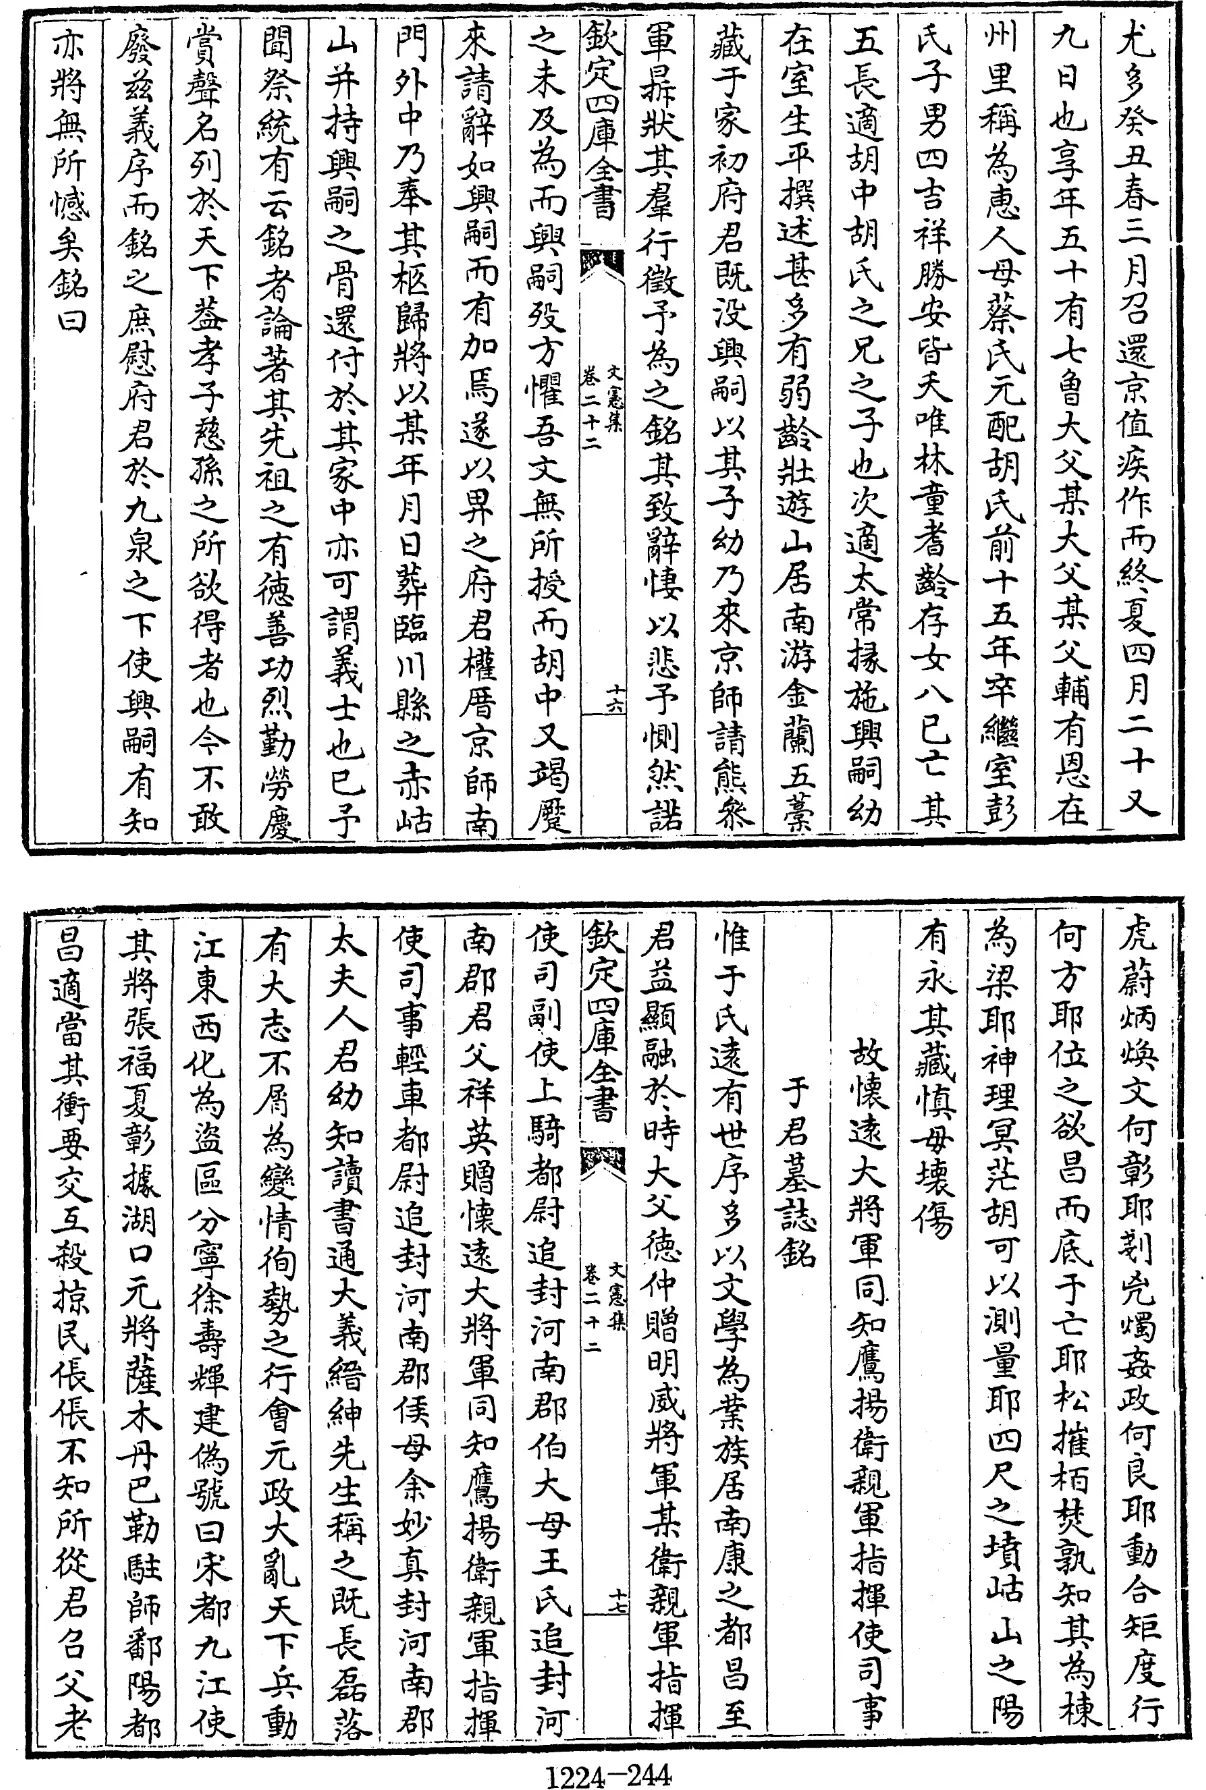 尤多癸丑春三月召還京值疾作而終夏四月二十又
九日也享年五十有七魯大父某大父某父輔有恩在
州里稱為恵人母蔡氏元配胡氏前十五年卒繼室彭
氏子男四吉祥勝安皆夭唯林童耆齡存女八已亡其
五長適胡中胡氏之兄之子也次適太常掾施興嗣幼
在室生平撰述甚多有弱齡壯遊山居南游金蘭五藁
藏于家初府君既没興嗣以其子幼乃來京師請熊叅
軍鼎狀其羣行徵予為之銘其致辭悽以悲予惻然諾
欽定四庫全書
文憲集
卷二十二
十六
之未及為而興嗣殁方懼吾文無所授而胡中又竭蹷
來請辭如興嗣而有加焉遂以畀之府君權厝京師南
門外中乃奉其柩歸將以某年月日葬臨川縣之赤岵
山并持興嗣之骨還付於其家中亦可謂義士也已予
聞祭統有云銘者論著其先祖之有徳善功烈勤勞慶
賞聲名列於天下葢孝子慈孫之所欲得者也今不敢
廢兹義序而銘之庶慰府君於九泉之下使興嗣有知
亦將無所憾矣銘曰
虎蔚炳煥文何彰耶剗兇燭姦政何良耶動合矩度行
何方耶位之欲昌而底于亡耶松摧栢焚孰知其為棟
為梁耶神理冥茫胡可以測量耶四尺之墳岵山之陽
有永其藏慎毋壊傷
故懷逺大將軍同知鷹揚衛親軍指揮使司事
于君墓誌銘
惟于氏逺有世序多以文學為業族居南康之都昌至
君益顯融於時大父徳仲贈明威將軍某衛親軍指揮
欽定四庫全書
文憲集
卷二十二
十七
使司副使上騎都尉追封河南郡伯大母王氏追封河
南郡君父祥英贈懷逺大將軍同知鷹揚衛親軍指揮
使司事輕車都尉追封河南郡侯母余妙真封河南郡
太夫人君幼知讀書通大義縉紳先生稱之既長磊落
有大志不屑為變情徇勢之行會元政大亂天下兵動
江東西化為盜區分寧徐壽輝建偽號曰宋都九江使
其將張福夏彰據湖口元將薩木丹巴勒駐師鄱陽都
昌適當其衝要交互殺掠民倀倀不知所從君召父老
1224-244